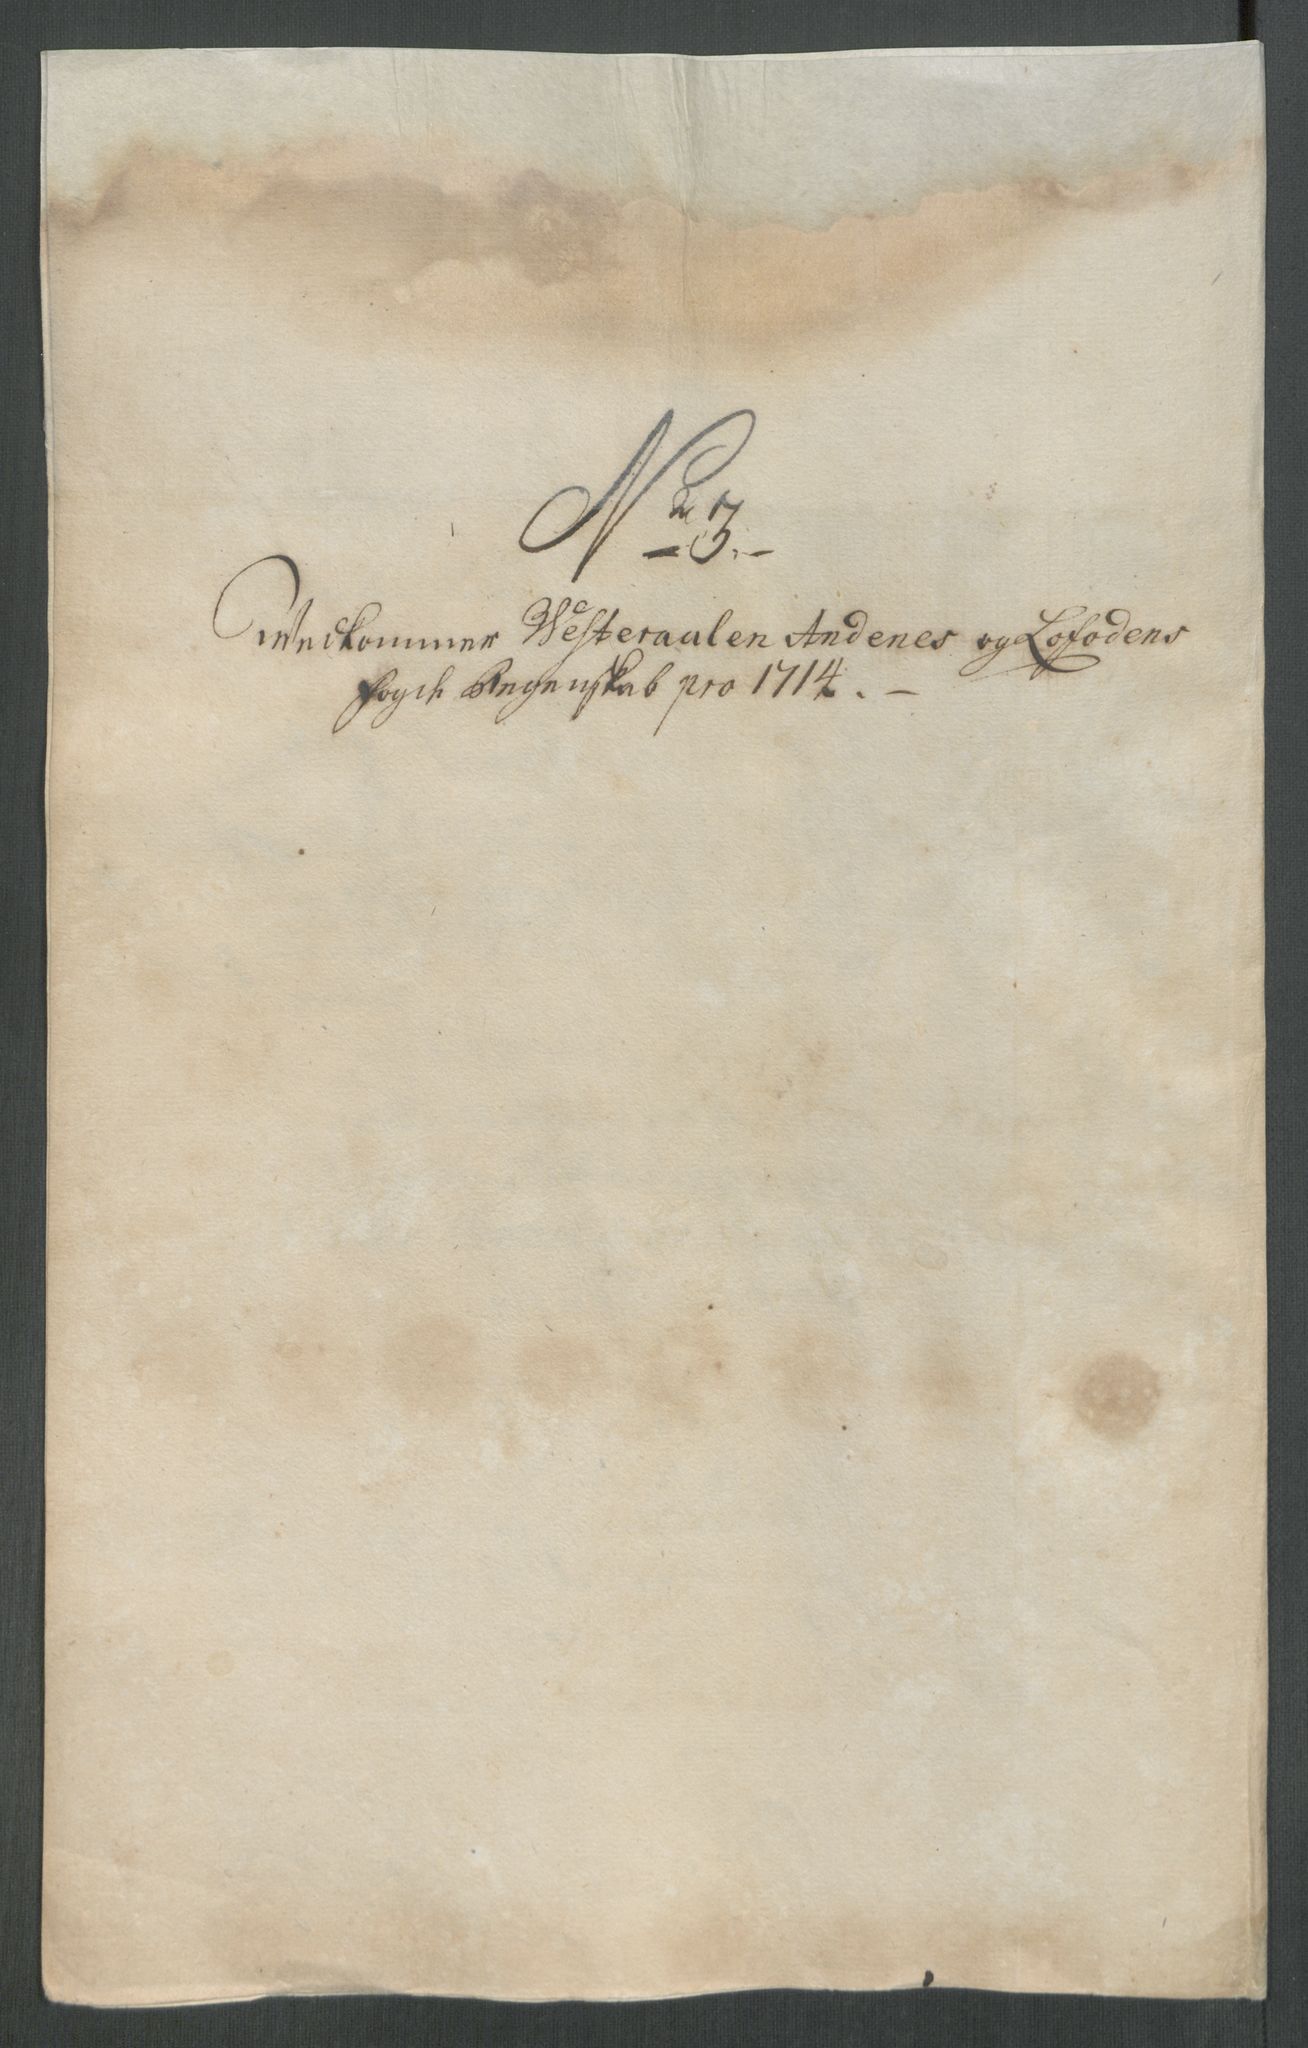 No 3.
Wedkommer Westeraalen Andenes og Lofodens
fogd Regenskab pro 1714. –